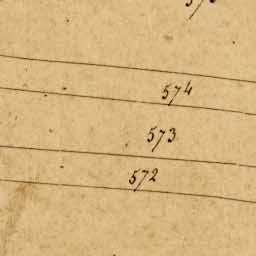 574
573
572